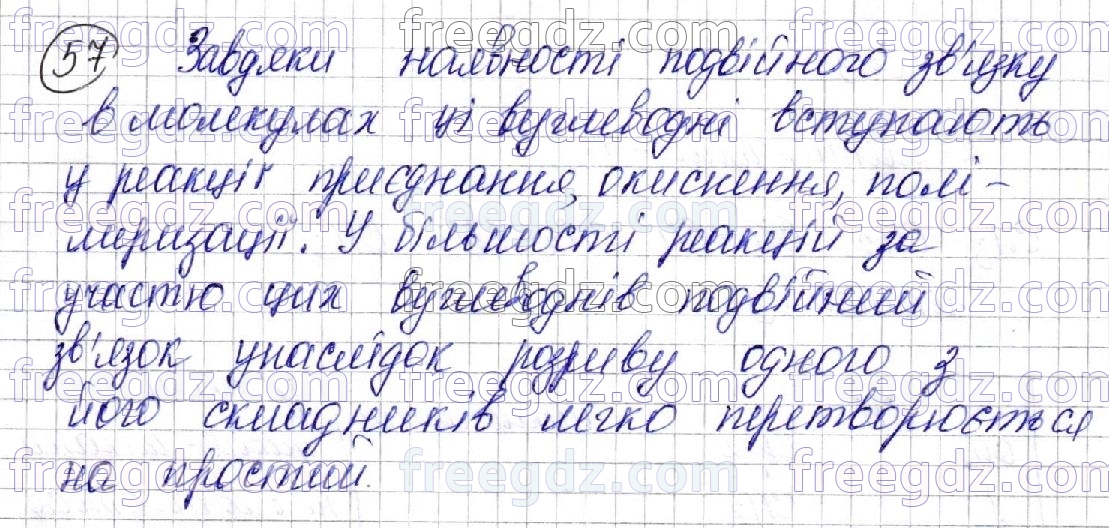 57 Завдяки наявності подвійного зв'язку
в молекулах ці вуглеводні вступають
у реакції приєднання, окиснення, полі-
меризації. У більшості реакцій за
участю цих вуглеводнів подвійний
зв'язок унаслідок розриву одного з
його складників легко перетворюється
на простий.